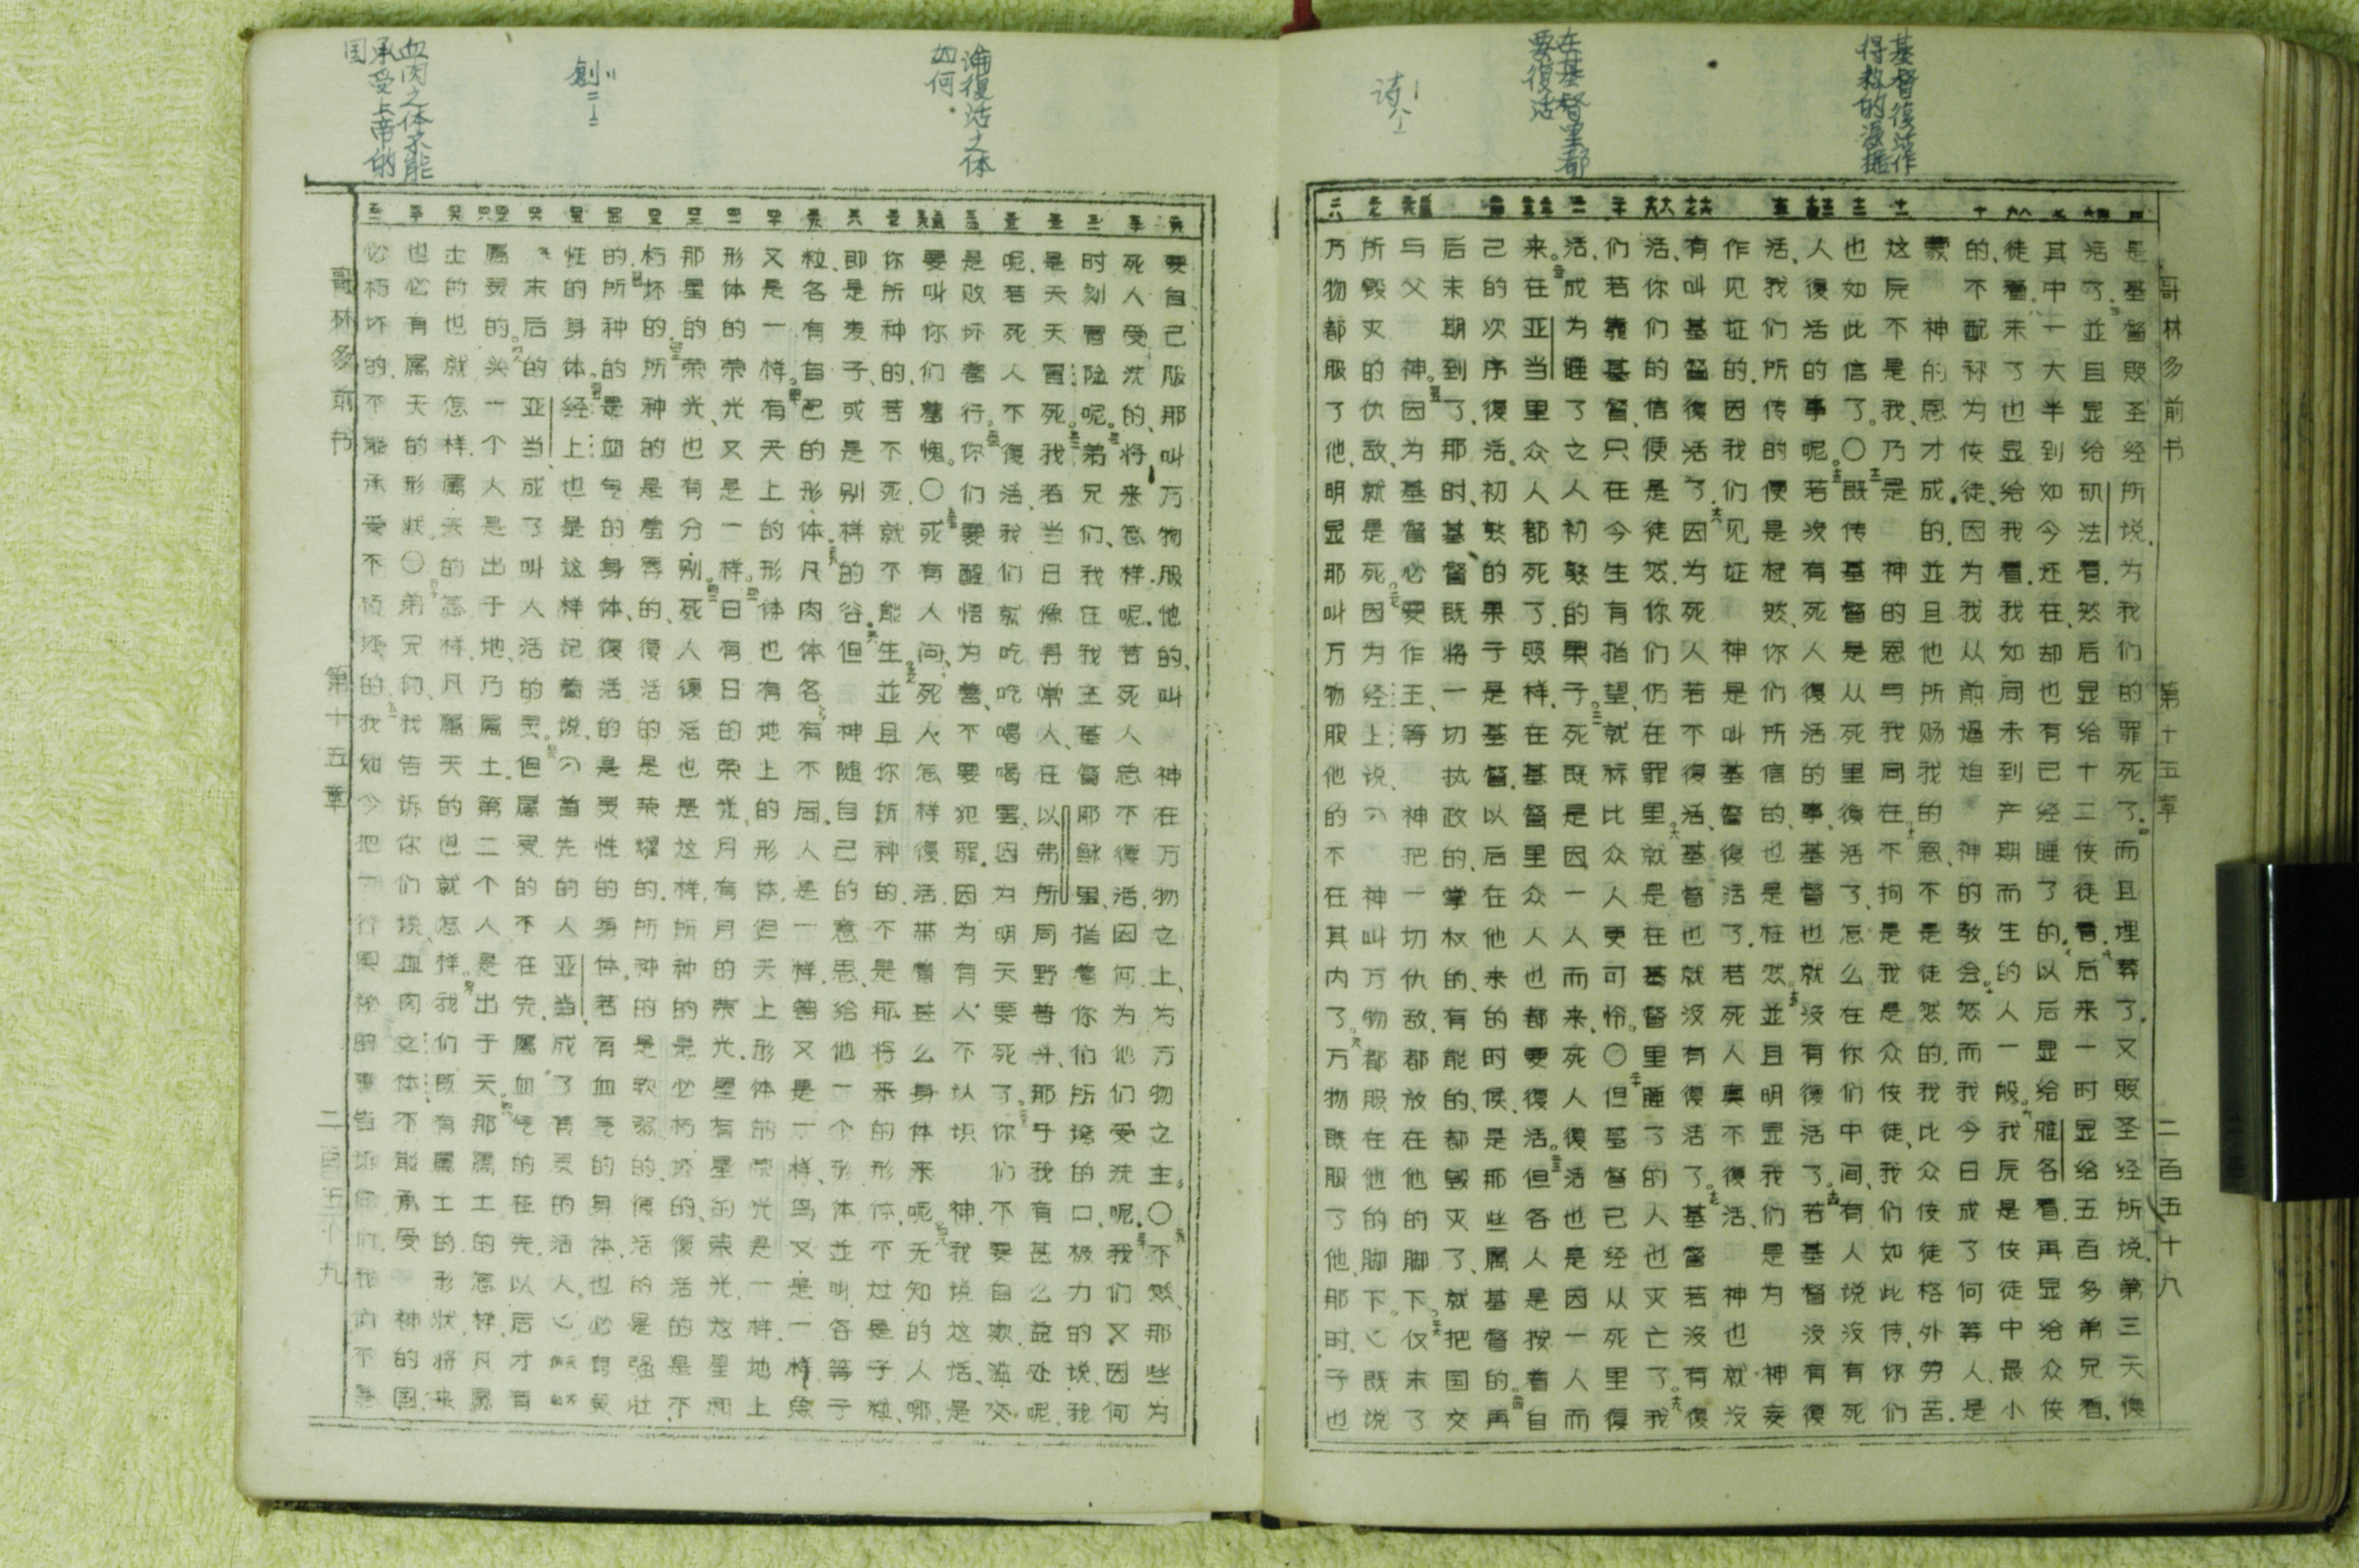 基督復活作
得救的湿据
在基督里都
要復活
诗八
哥林多前书 第十五章 二百五十八
是基督照圣经所说、为我们的罪死了.而且埋葬了.又照圣经所说、第三天復
活了.並且显给矶法看.然后显给十二使徒看.后来一时显给五百多弟兄看、
其中一大半到如今还在.却也有已经睡了的.以后显给雅各看.再显给众使
徒看.末了也显给我看.我如同未到产期而生的人一般.我原是使徒中最小
的、不配称为使徒、因为我从前逼迫 神的教会.然而我今日成了何等人.是
蒙 神的恩才成的.並且他所赐我的恩不是徒然的.我比众使徒格外劳苦.
这原不是我、乃是 神的恩与我同在.不拘是我是众使徒、我们如此传、你们
也如此信了.〇既传基督是从死里復活了、怎么在你们中间有人说没有死
人復活的事呢.若没有死人復活的事、基督也就没有復活了.若基督没有復
活、我们所传的便是枉然、你们所信的也是枉然.並且明显我们是为 神妄
作见证的.因我们见证 神是叫基督復活了.若死人真不復活、 神也就没
有叫基督復活了.因为死人若不復活、基督也就没有復活了.基督若没有復
活、你们的信便是徒然、你们仍在罪里.就是在基督里睡了的人也灭亡了.我
们若靠基督、只在今生有指望、就称比众人更可怜.〇但基督已经从死里復
活、成为睡了之人初熟的果子.死既是因一人而来、死人復活也是因一人而
来.在亚当里众人都死了.照样在基督里众人也都要復活.但各人是按着自
己的次序復活.初熟的果子是基督.以后在他来的时候、是那些属基督的.再
后末期到了、那时、基督既将一切执政的、掌权的、有能的、都毁灭了、就把国交
与父 神.因为基督必要作王、等 神把一切仇敌、都放在他的脚下.仅末了
所毁灭的仇敌、就是死.因为经上说、 神叫万物都服在他的脚下.既说
万物都服了他、明显那叫万物服他的不在其内了.万物既服了他、那时子也
论復活之体
如何
創二
血肉之体不能
承受上帝的
国
要自己服那叫万物服他的、叫 神在万物之上、为万物之主.〇不然、那些为
死人受洗的、将来怎样呢.若死人总不復活、因何为他们受洗呢.我们又因何
时刻冒险呢.弟兄们、我在我主基督耶稣里、指着你们所誇的口、极力的说、我
是天天冒死.我若当日像寻常人、在以弗所同野兽斗、那于我有甚么益处呢.
呢、若死人不復活、我们就吃吃喝喝罢.因为明天要死了.你们不要自欺.滥交
是败坏善行.你们要醒悟为善、不要犯罪.因为有人不认识 神.我说这话、是
要叫你们羞愧.〇死有人问、死人怎样復活、带着甚么身体来呢.无知的人哪、
你所种的、若不死、就不能生.並且你所种的、不是那将来的形体、不过是子粒、
即是麦子、或是别样的谷.但 神随自己的意思给他一个形体、並叫各等子
粒、各有自己的形体.凡肉体各有不同.人是一样、兽又是一样、鸟又是一样、鱼
又是一样.有天上的形体、也有地上的形体.但天上形体的荣光是一样、地上
形体的荣光又是一样.日有日的荣光、月有月的荣光.星有星的荣光.这星和
那星的荣光、也有分别.死人復活也是这样.所种的是必朽坏的、復活的是不
朽坏的.所种的是羞辱的、復活的是荣耀的.所种的是软弱的、復活的是强壮
的.所种的是血气的身体、復活的是灵性的身体.若有血气的身体、也必有灵
性的身体.经上也是这样记着说、首先的人亚当成了有灵的活人.
末后的亚当成了叫人活的灵.但属灵的不在先、属血气的在先.以后才有
属灵的.头一个人是出于地、乃属土.第二个人是出于天.那属土的怎样、凡属
土的也就怎样.属天的怎样、凡属天的也就怎样.我们既有属土的形状、将来
也必有属天的形状.〇弟兄们、我告诉你们、血肉之体不能承受 神的国.
必朽坏的、不能承受不朽坏的.我如今把一件奥秘的事告诉你们.我们不是
哥林多前书 第十五章 二百五十九